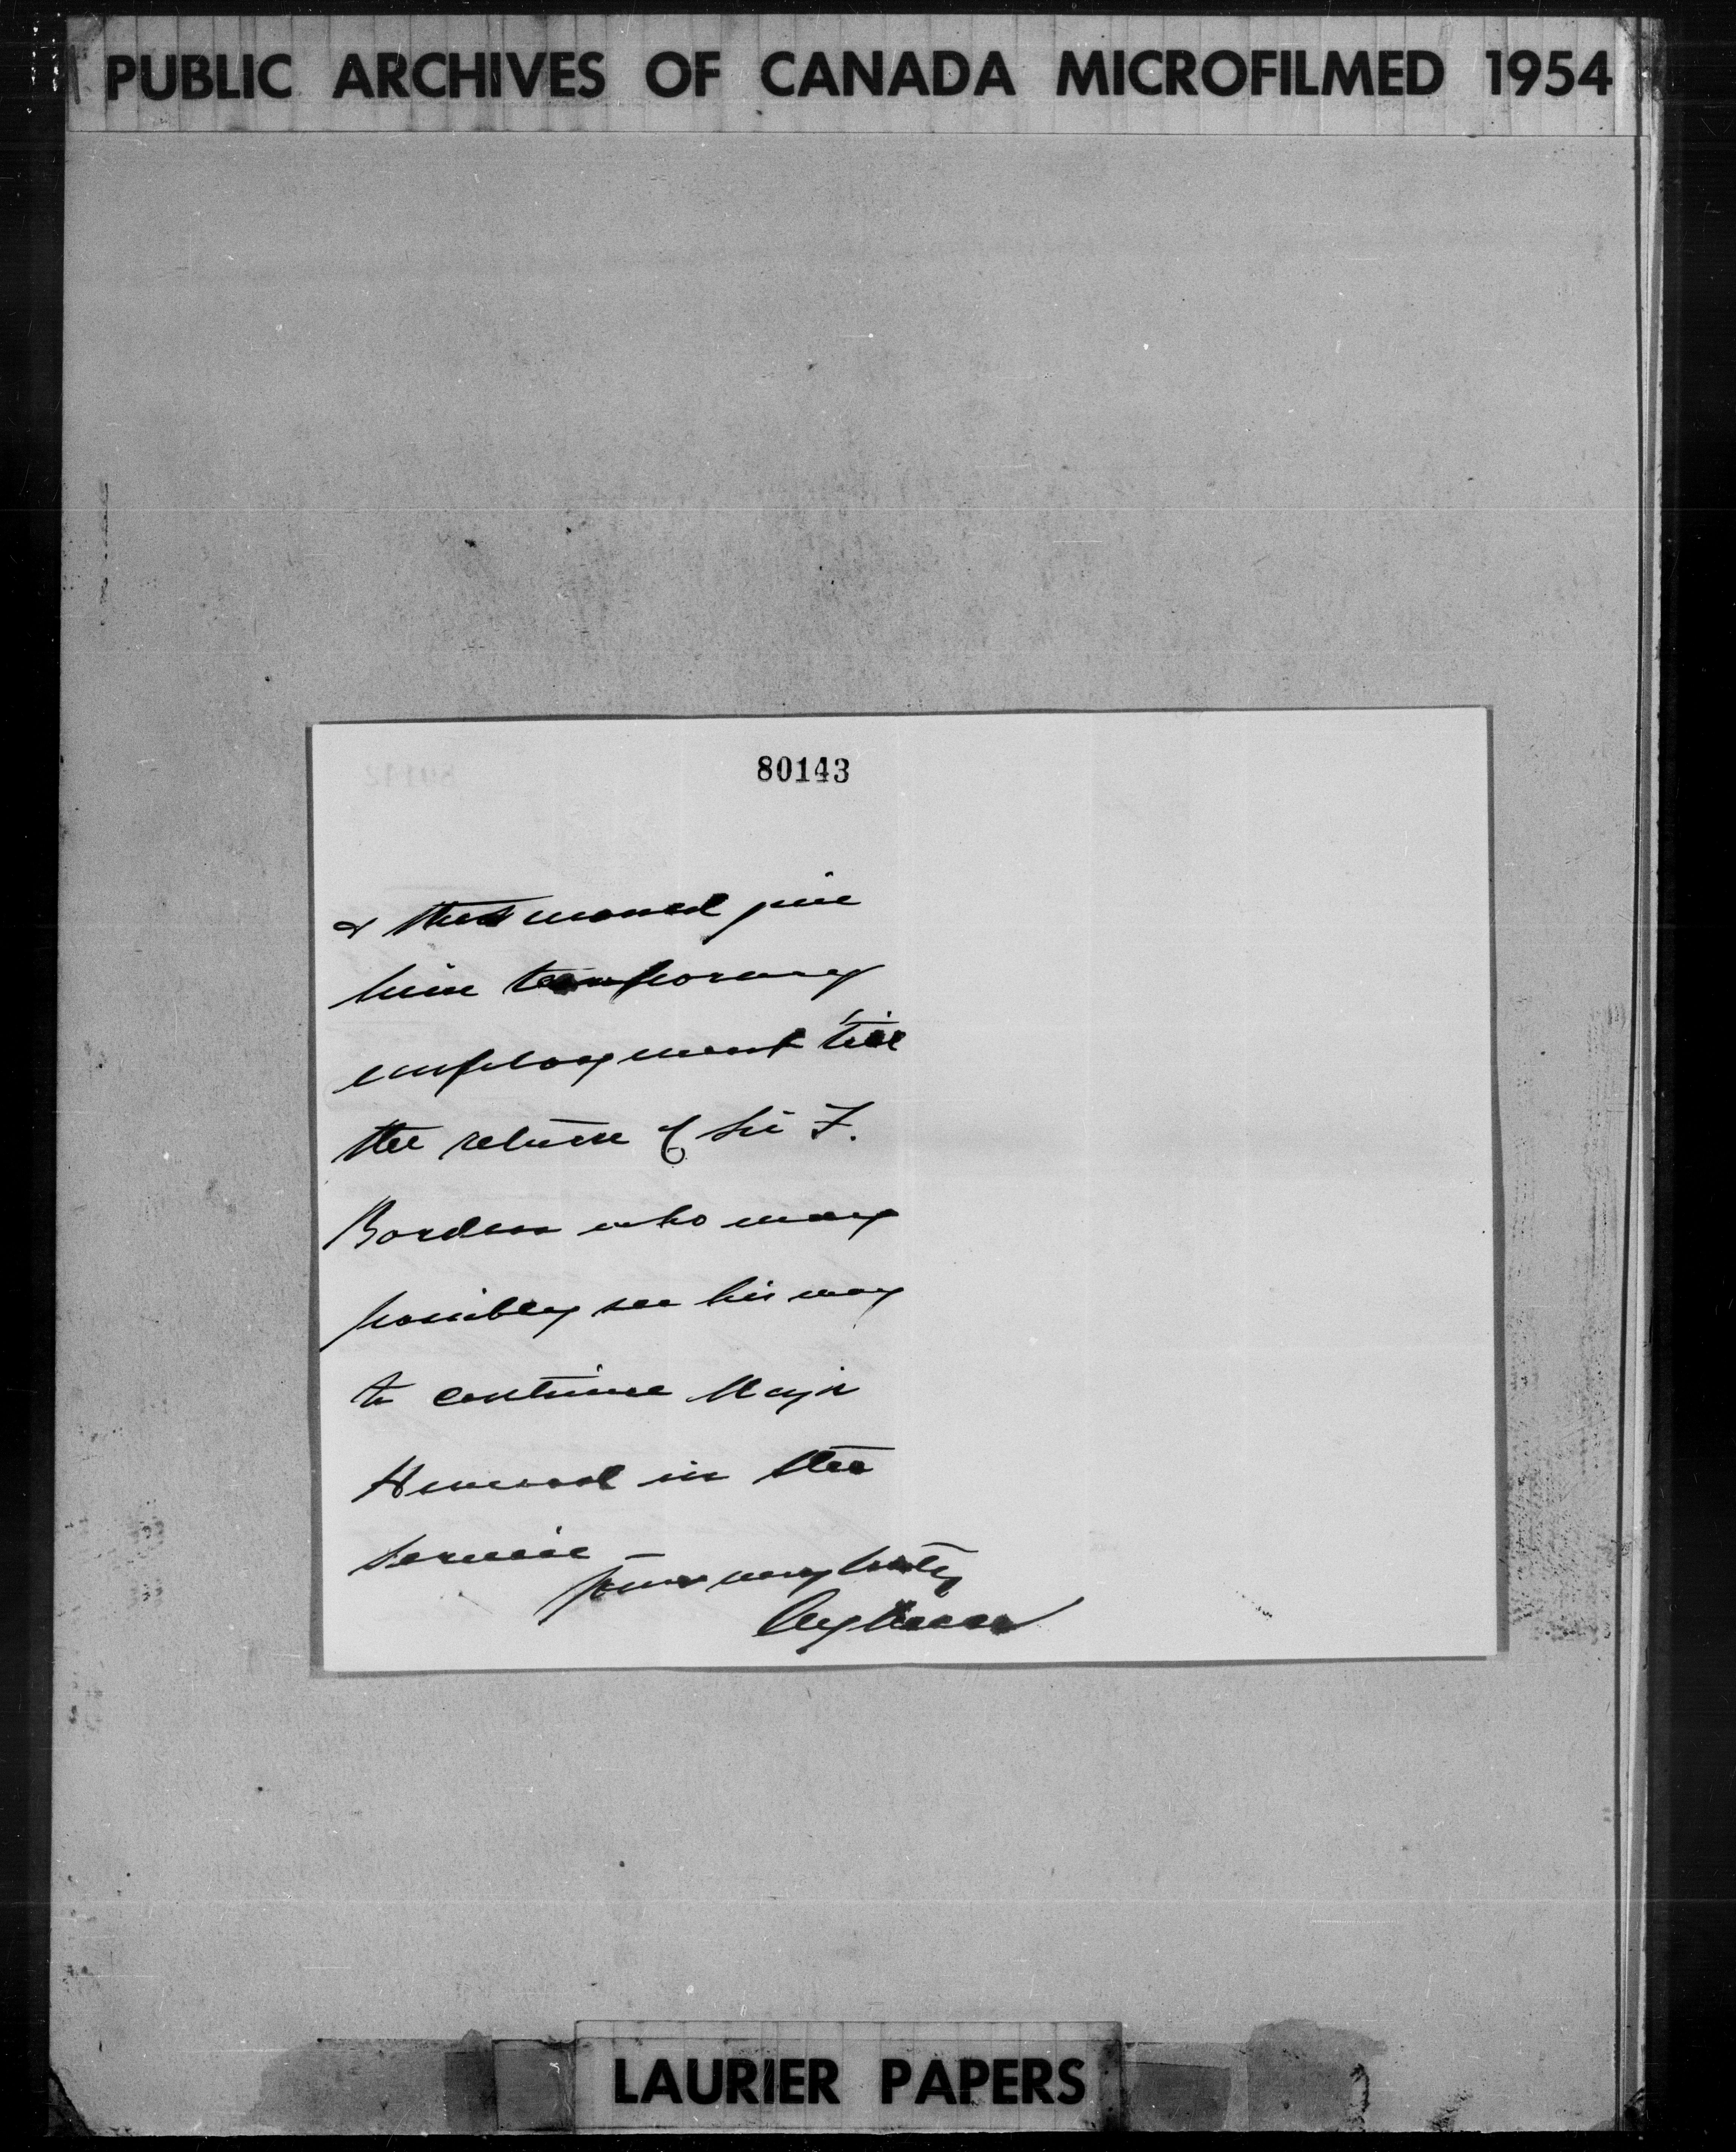 PUBLIC ARCHIVES OF CANADA MICROFILMED 1954
80143
& that would give
him temporary
employment till
the return of Sir F.
Borden who may
possibly see his way
to continue Major
in the
service –
Yours very truly
LAURIER PAPERS